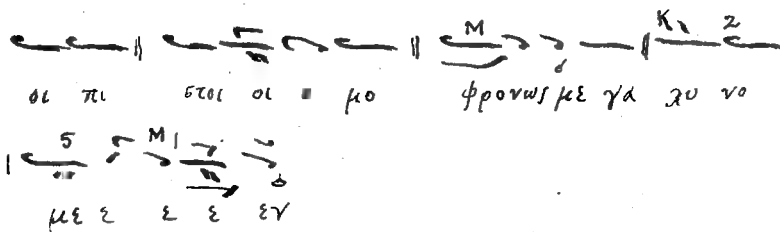 οι πι στοι οι μο φρονως με γα λυ νο
με ε ε ε εν